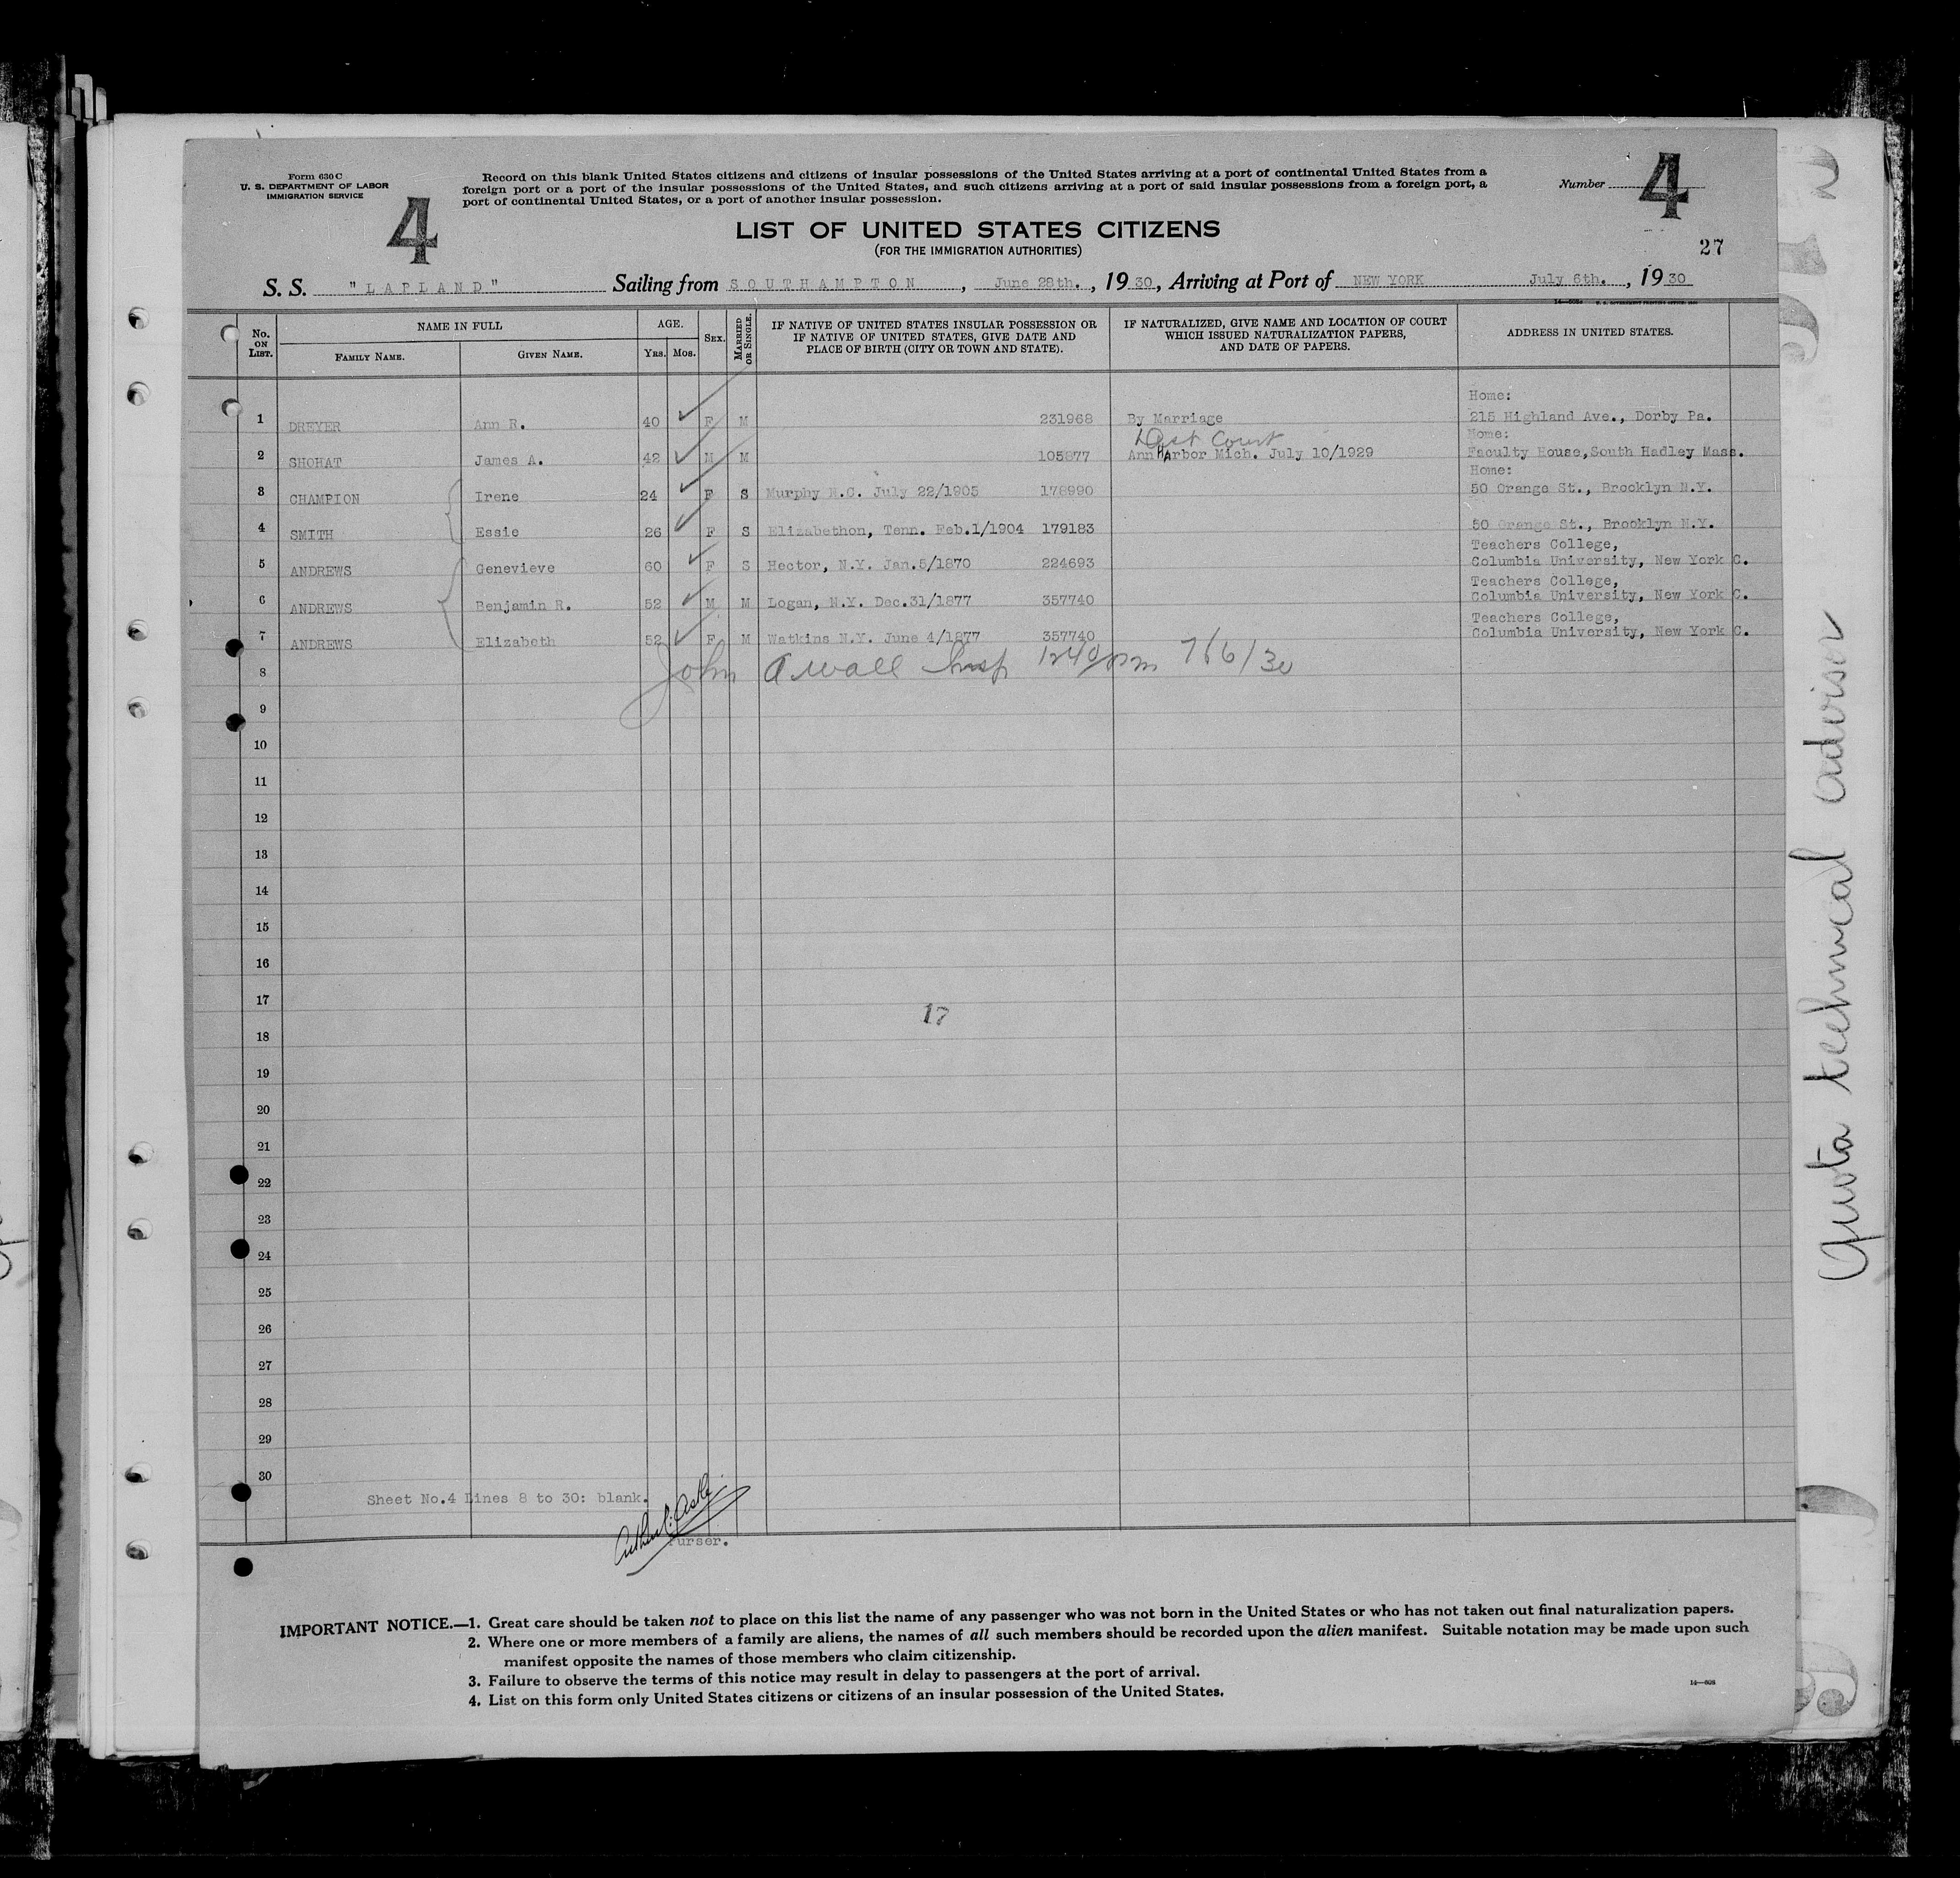 Form 630 C
U. S. DEPARTMENT OF LABOR
IMMIGRATION SERVICE
4
Record on this blank United States citizens and citizens of insular possessions of the United States arriving at a port of continental United States from a
foreign port or a port of the insular possessions of the United States, and such citizens arriving at a port of said insular possessions from a foreign port, a
port of continental United States, or a port of another insular possession.
Number 4
LIST OF UNITED STATES CITIZENS
(FOR THE IMMIGRATION AUTHORITIES)
27
S. S. "LAPLAND" Sailing from SOUTHAMPTON, June 28th., 1930, Arriving at Port of NEW YORK July 6th., 1930
No. ON LIST. NAME IN FULL FAMILY NAME. GIVEN NAME. AGE. YRS. MOS. SEX. MARRIED OR SINGLE. IF NATIVE OF UNITED STATES INSULAR POSSESSION OR IF NATIVE OF UNITED STATES, GIVE DATE AND PLACE OF BIRTH (CITY OR TOWN AND STATE). IF NATURALIZED, GIVE NAME AND LOCATION OF COURT WHICH ISSUED NATURALIZATION PAPERS, AND DATE OF PAPERS. ADDRESS IN UNITED STATES.
Home:
1 DREYER Ann R. 40 F M 231968 By Marriage 215 Highland Ave., Dorby Pa.
Dist Court Home:
2 SHOHAT James A. 42 M M 105877 Ann Arbor Mich. July 10/1929 Faculty House, South Hadley Mass.
Home:
3 CHAMPION Irene 24 F S Murphy N.C. July 22/1905 178990 50 Orange St., Brooklyn N.Y.
4 SMITH Essie 26 F S Elizabethon, Tenn. Feb.1/1904 179183 50 Orange St., Brooklyn N.Y.
Teachers College,
5 ANDREWS Genevieve 60 F S Hector, N.Y. Jan.5/1870 224693 Columbia University, New York C.
Teachers College,
6 ANDREWS Benjamin R. 52 M M Logan, N.Y. Dec.31/1877 357740 Columbia University, New York C.
Teachers College,
7 ANDREWS Elizabeth 52 F M Watkins N.Y. June 4/1877 357740 Columbia University, New York C.
John A Wall Insp 1240 pm 7/6/30
8
9
10
11
12
13
14
15
16
17
17
18
19
20
21
22
23
24
25
26
27
28
29
30
Sheet No.4 Lines 8 to 30: blank.
Purser.
IMPORTANT NOTICE.—1. Great care should be taken not to place on this list the name of any passenger who was not born in the United States or who has not taken out final naturalization papers.
2. Where one or more members of a family are aliens, the names of all such members should be recorded upon the alien manifest. Suitable notation may be made upon such
manifest opposite the names of those members who claim citizenship.
3. Failure to observe the terms of this notice may result in delay to passengers at the port of arrival.
4. List on this form only United States citizens or citizens of an insular possession of the United States.
Quota technical advisor